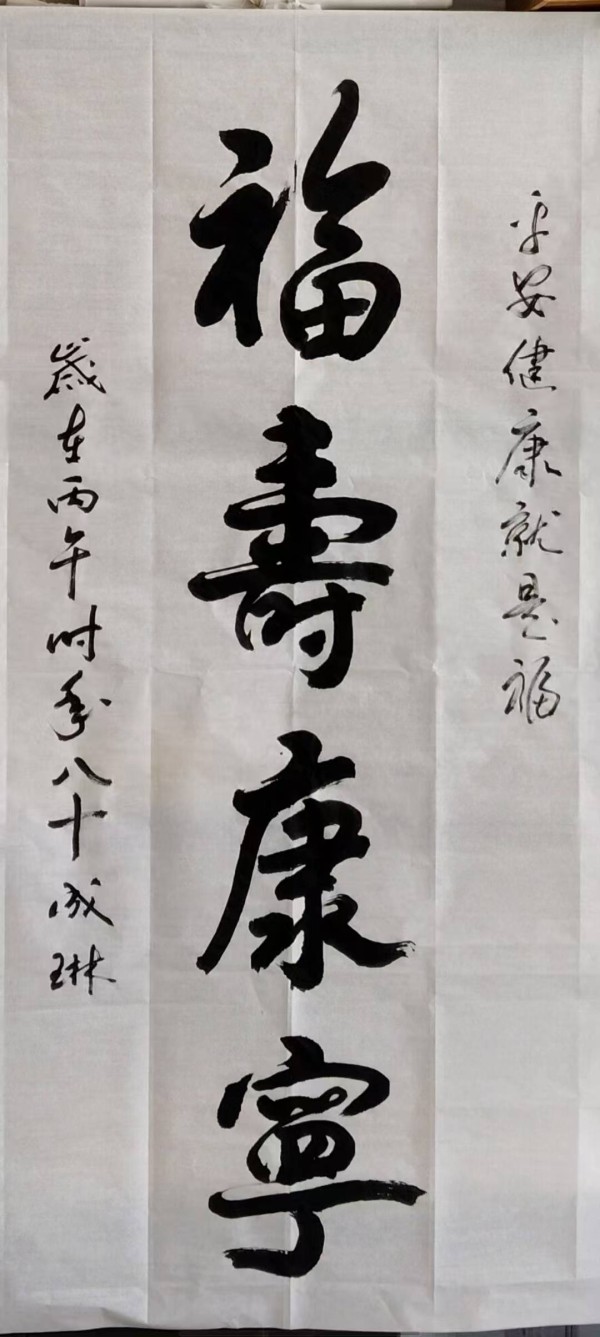 平安健康就是福
福壽康寧
歲在丙午时年八十成琳